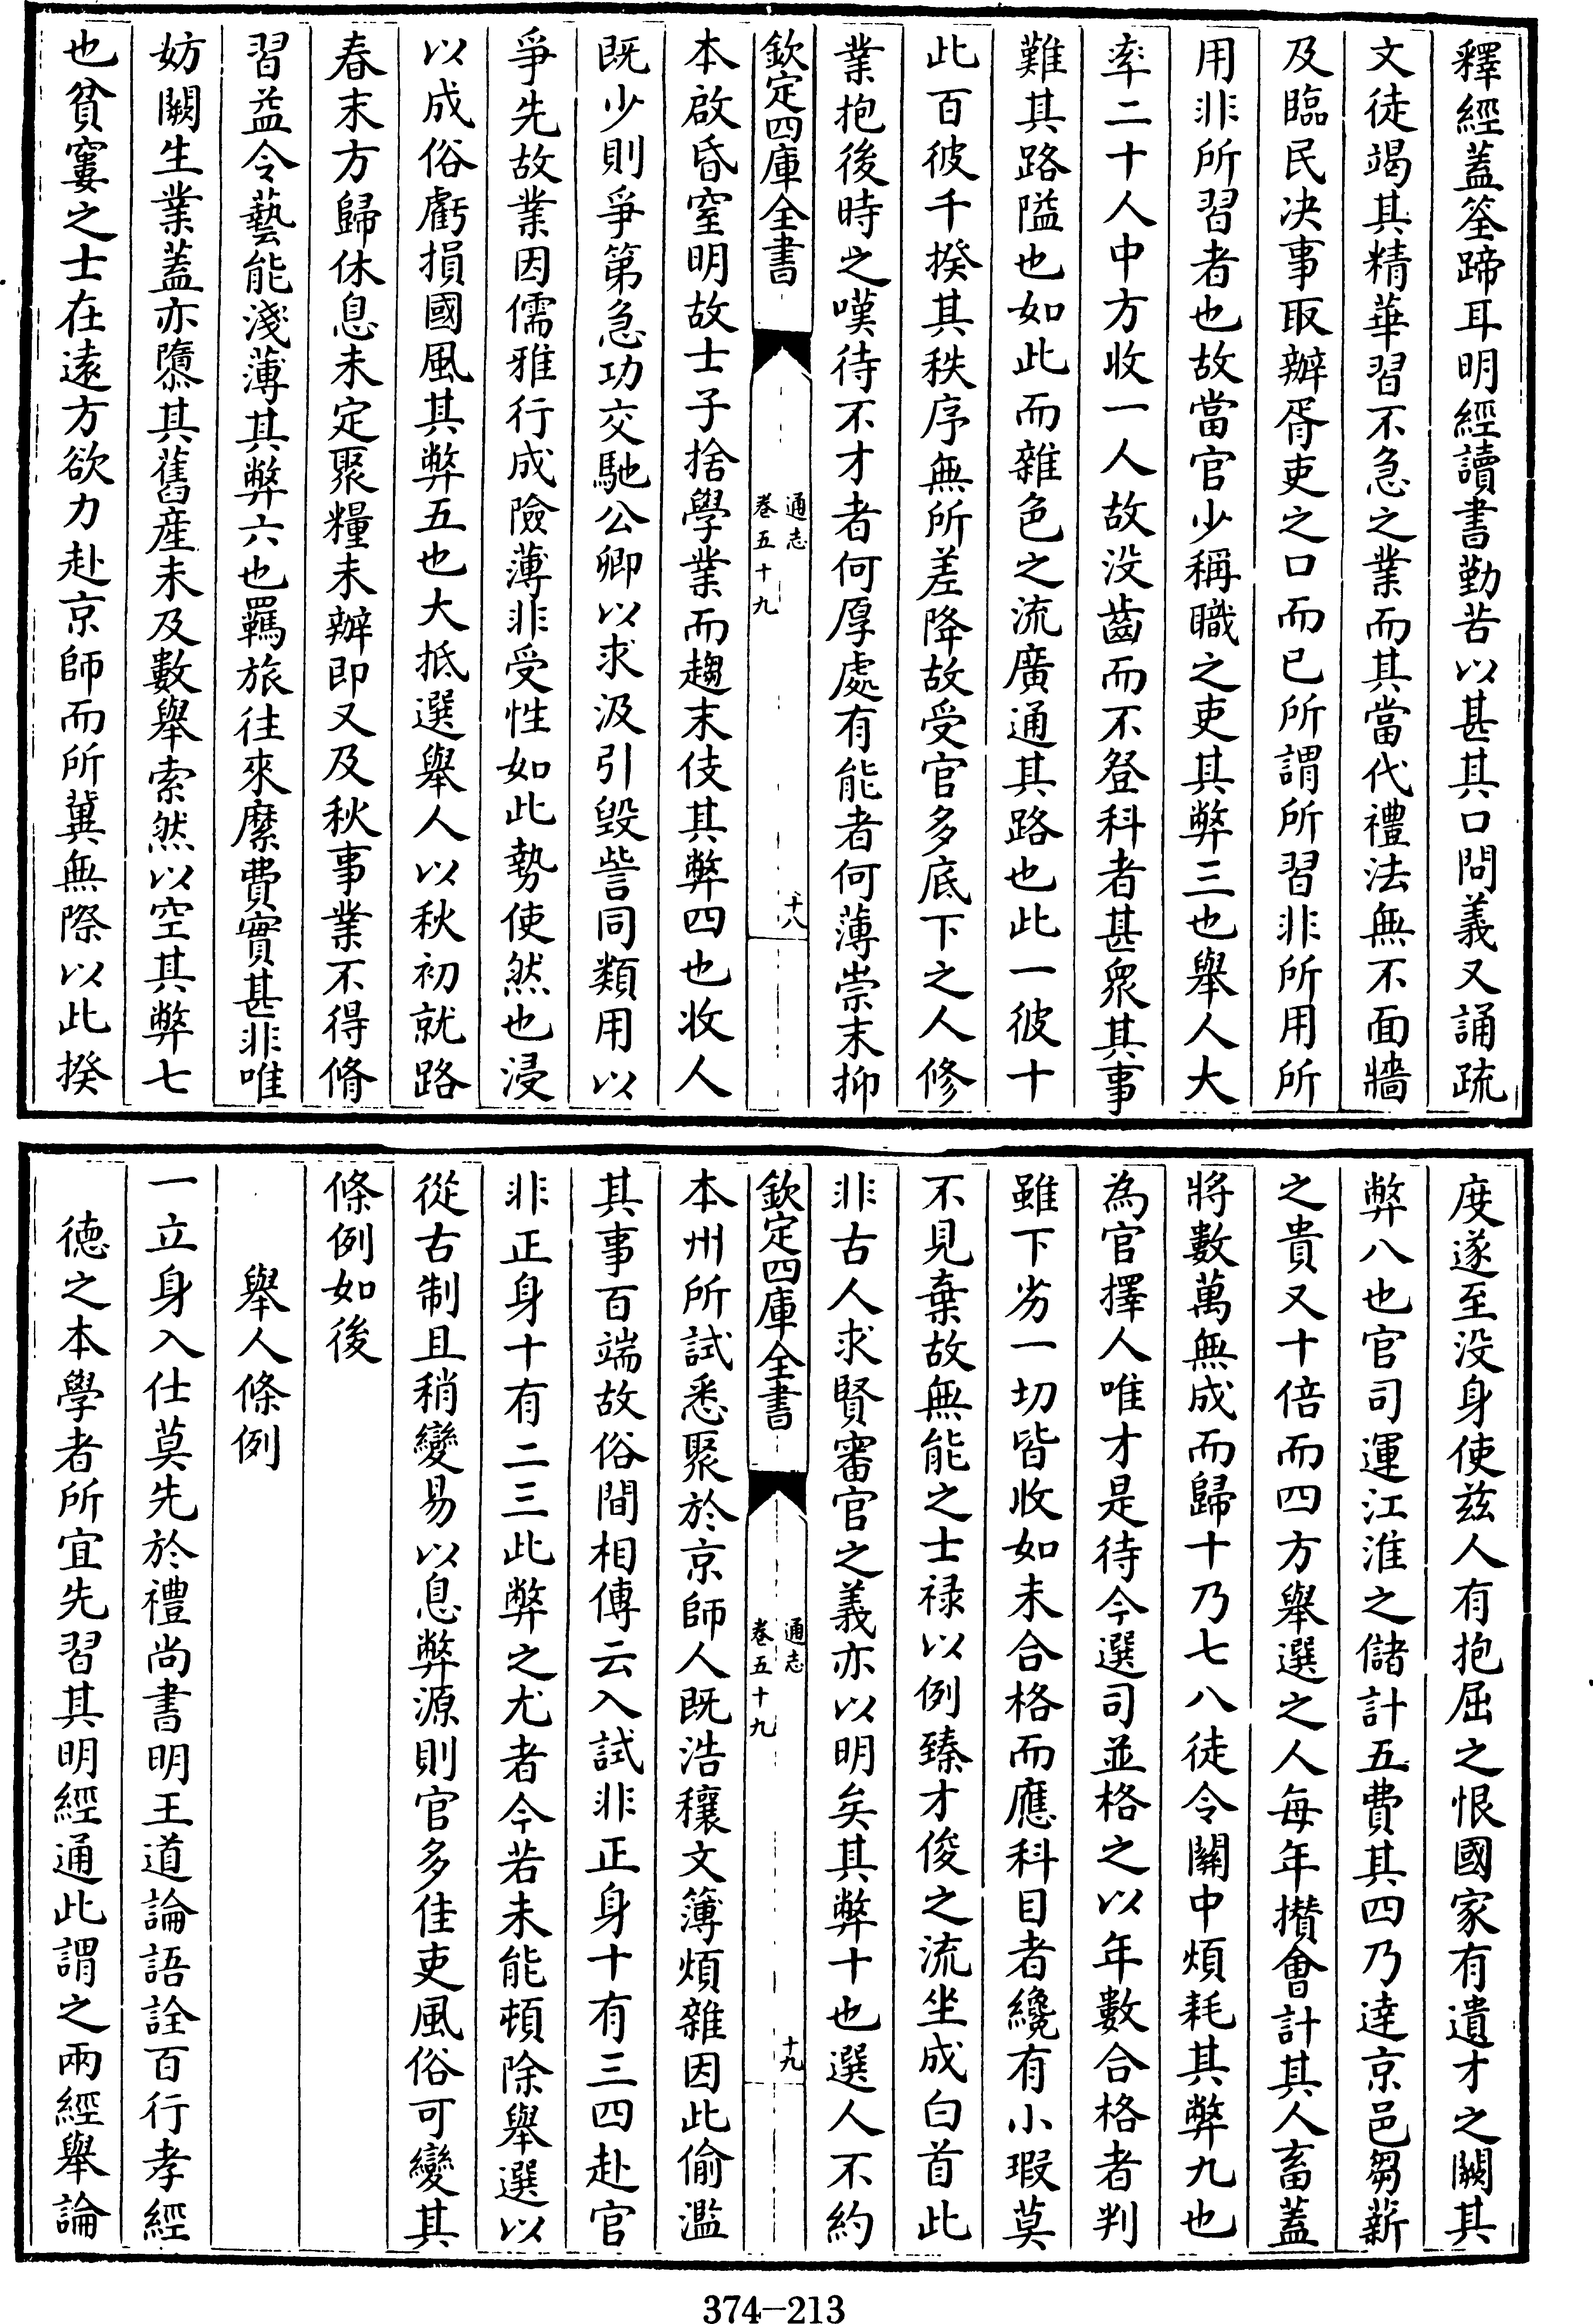 釋經蓋筌蹄耳明經讀書勤苦以甚其口問義又誦疏
文徒竭其精華習不急之業而其當代禮法無不面牆
及臨民决事取辦胥吏之口而已所謂所習非所用所
用非所習者也故當官少稱職之吏其弊三也舉人大
率二十人中方收一人故没齒而不登科者甚衆其事
難其路隘也如此而雜色之流廣通其路也此一彼十
此百彼千揆其秩序無所差降故受官多底下之人修
業抱後時之嘆待不才者何厚處有能者何薄崇末抑
欽定四庫全書
通志
卷五十九
十八
本啟昏窒明故士子捨學業而趨末伎其弊四也收人
既少則爭第急功交馳公卿以求汲引毀訾同類用以
爭先故業因儒雅行成險薄非受性如此勢使然也浸
以成俗虧損國風其弊五也大抵選舉人以秋初就路
春末方歸休息未定聚糧未辦即又及秋事業不得脩
習益令藝能淺薄其弊六也羈旅往來縻費實甚非唯
妨闕生業蓋亦隳其舊産未及數舉索然以空其弊七
也貧窶之士在遠方欲力赴京師而所冀無際以此揆
度遂至没身使兹人有抱屈之恨國家有遺才之闕其
弊八也官司運江淮之儲計五費其四乃達京邑芻薪
之貴又十倍而四方舉選之人每年攢會計其人畜蓋
將數萬無成而歸十乃七八徒令關中煩耗其弊九也
為官擇人唯才是待今選司並格之以年數合格者判
雖下劣一切皆收如未合格而應科目者纔有小瑕莫
不見棄故無能之士祿以例臻才俊之流坐成白首此
非古人求賢審官之義亦以明矣其弊十也選人不約
欽定四庫全書
通志
卷五十九
十九
本州所試悉聚於京師人既浩穰文簿煩雜因此偷濫
其事百端故俗間相傳云入試非正身十有三四赴官
非正身十有二三此弊之尤者今若未能頓除舉選以
從古制且稍變易以息弊源則官多佳吏風俗可變其
條例如後
舉人條例
一立身入仕莫先於禮尚書明王道論語詮百行孝經
德之本學者所宜先習其明經通此謂之兩經舉論
374-213